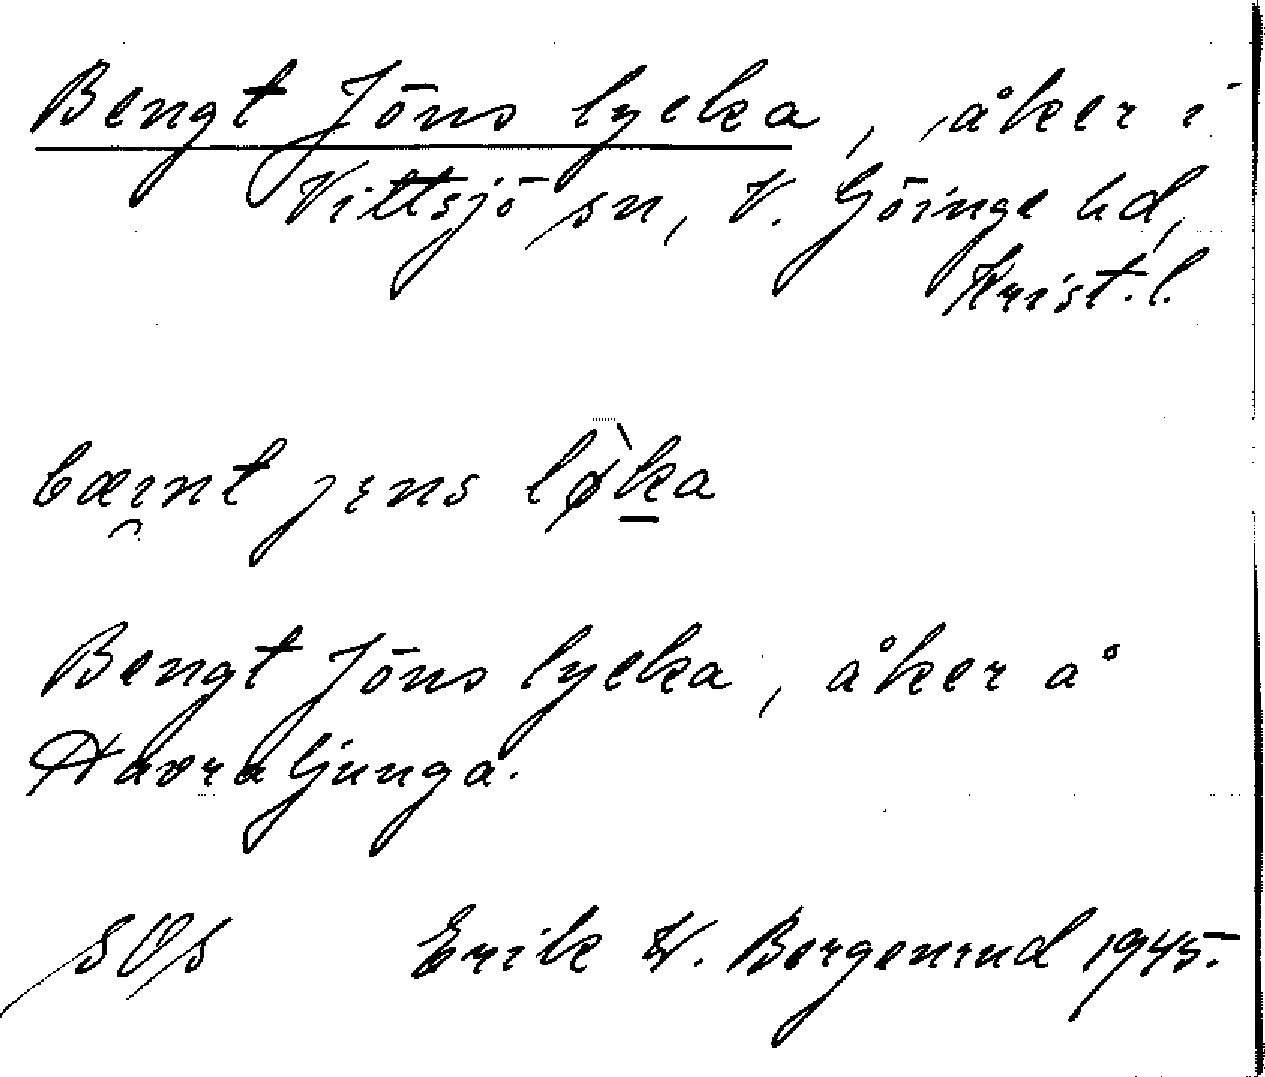 Bengt Jöns lycka, åker i
Vittsjö sn, V. Göinge hd,
Krist. l.
bæi̯nt jɛns lø̀ka
Bengt Jöns lycka, åker å
Havraljunga.
SOS Erik W. Bergenrud 1945.